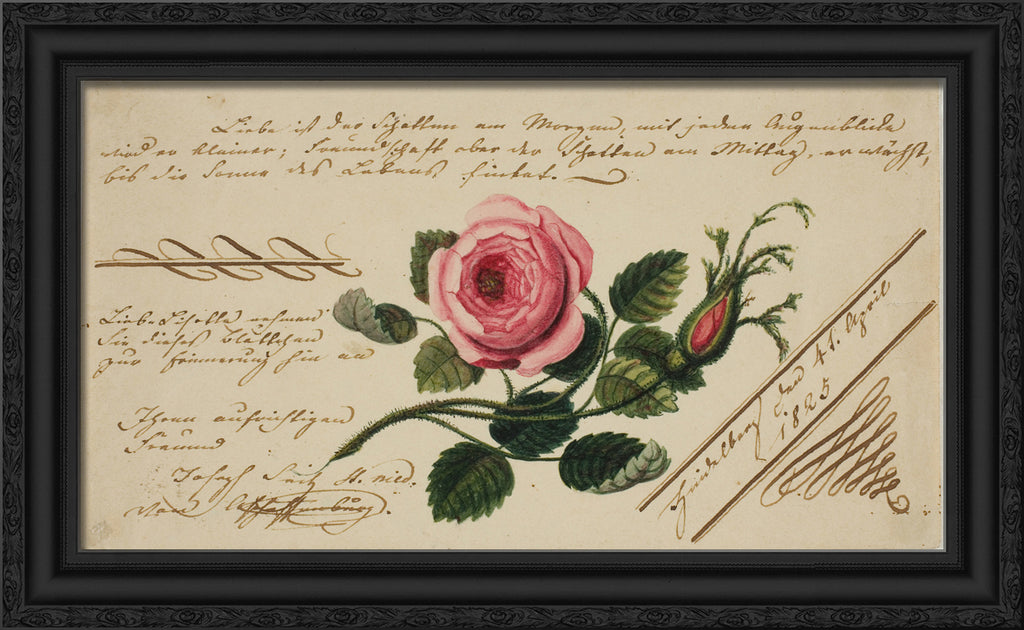 Liebe ist der Schatten am Morgen, mit jedem Augenblicke
wird er kleiner; Freundschaft aber der Schatten am Mittag, er wächst,
bis die Sonne des Lebens sinket.
nehmen
Sie dieses Blättchen
zur Erinnerung hin an
Ihren aufrichtigen
Freund
Joseph
von Aschaffenburg.
Heidelberg den April
1825